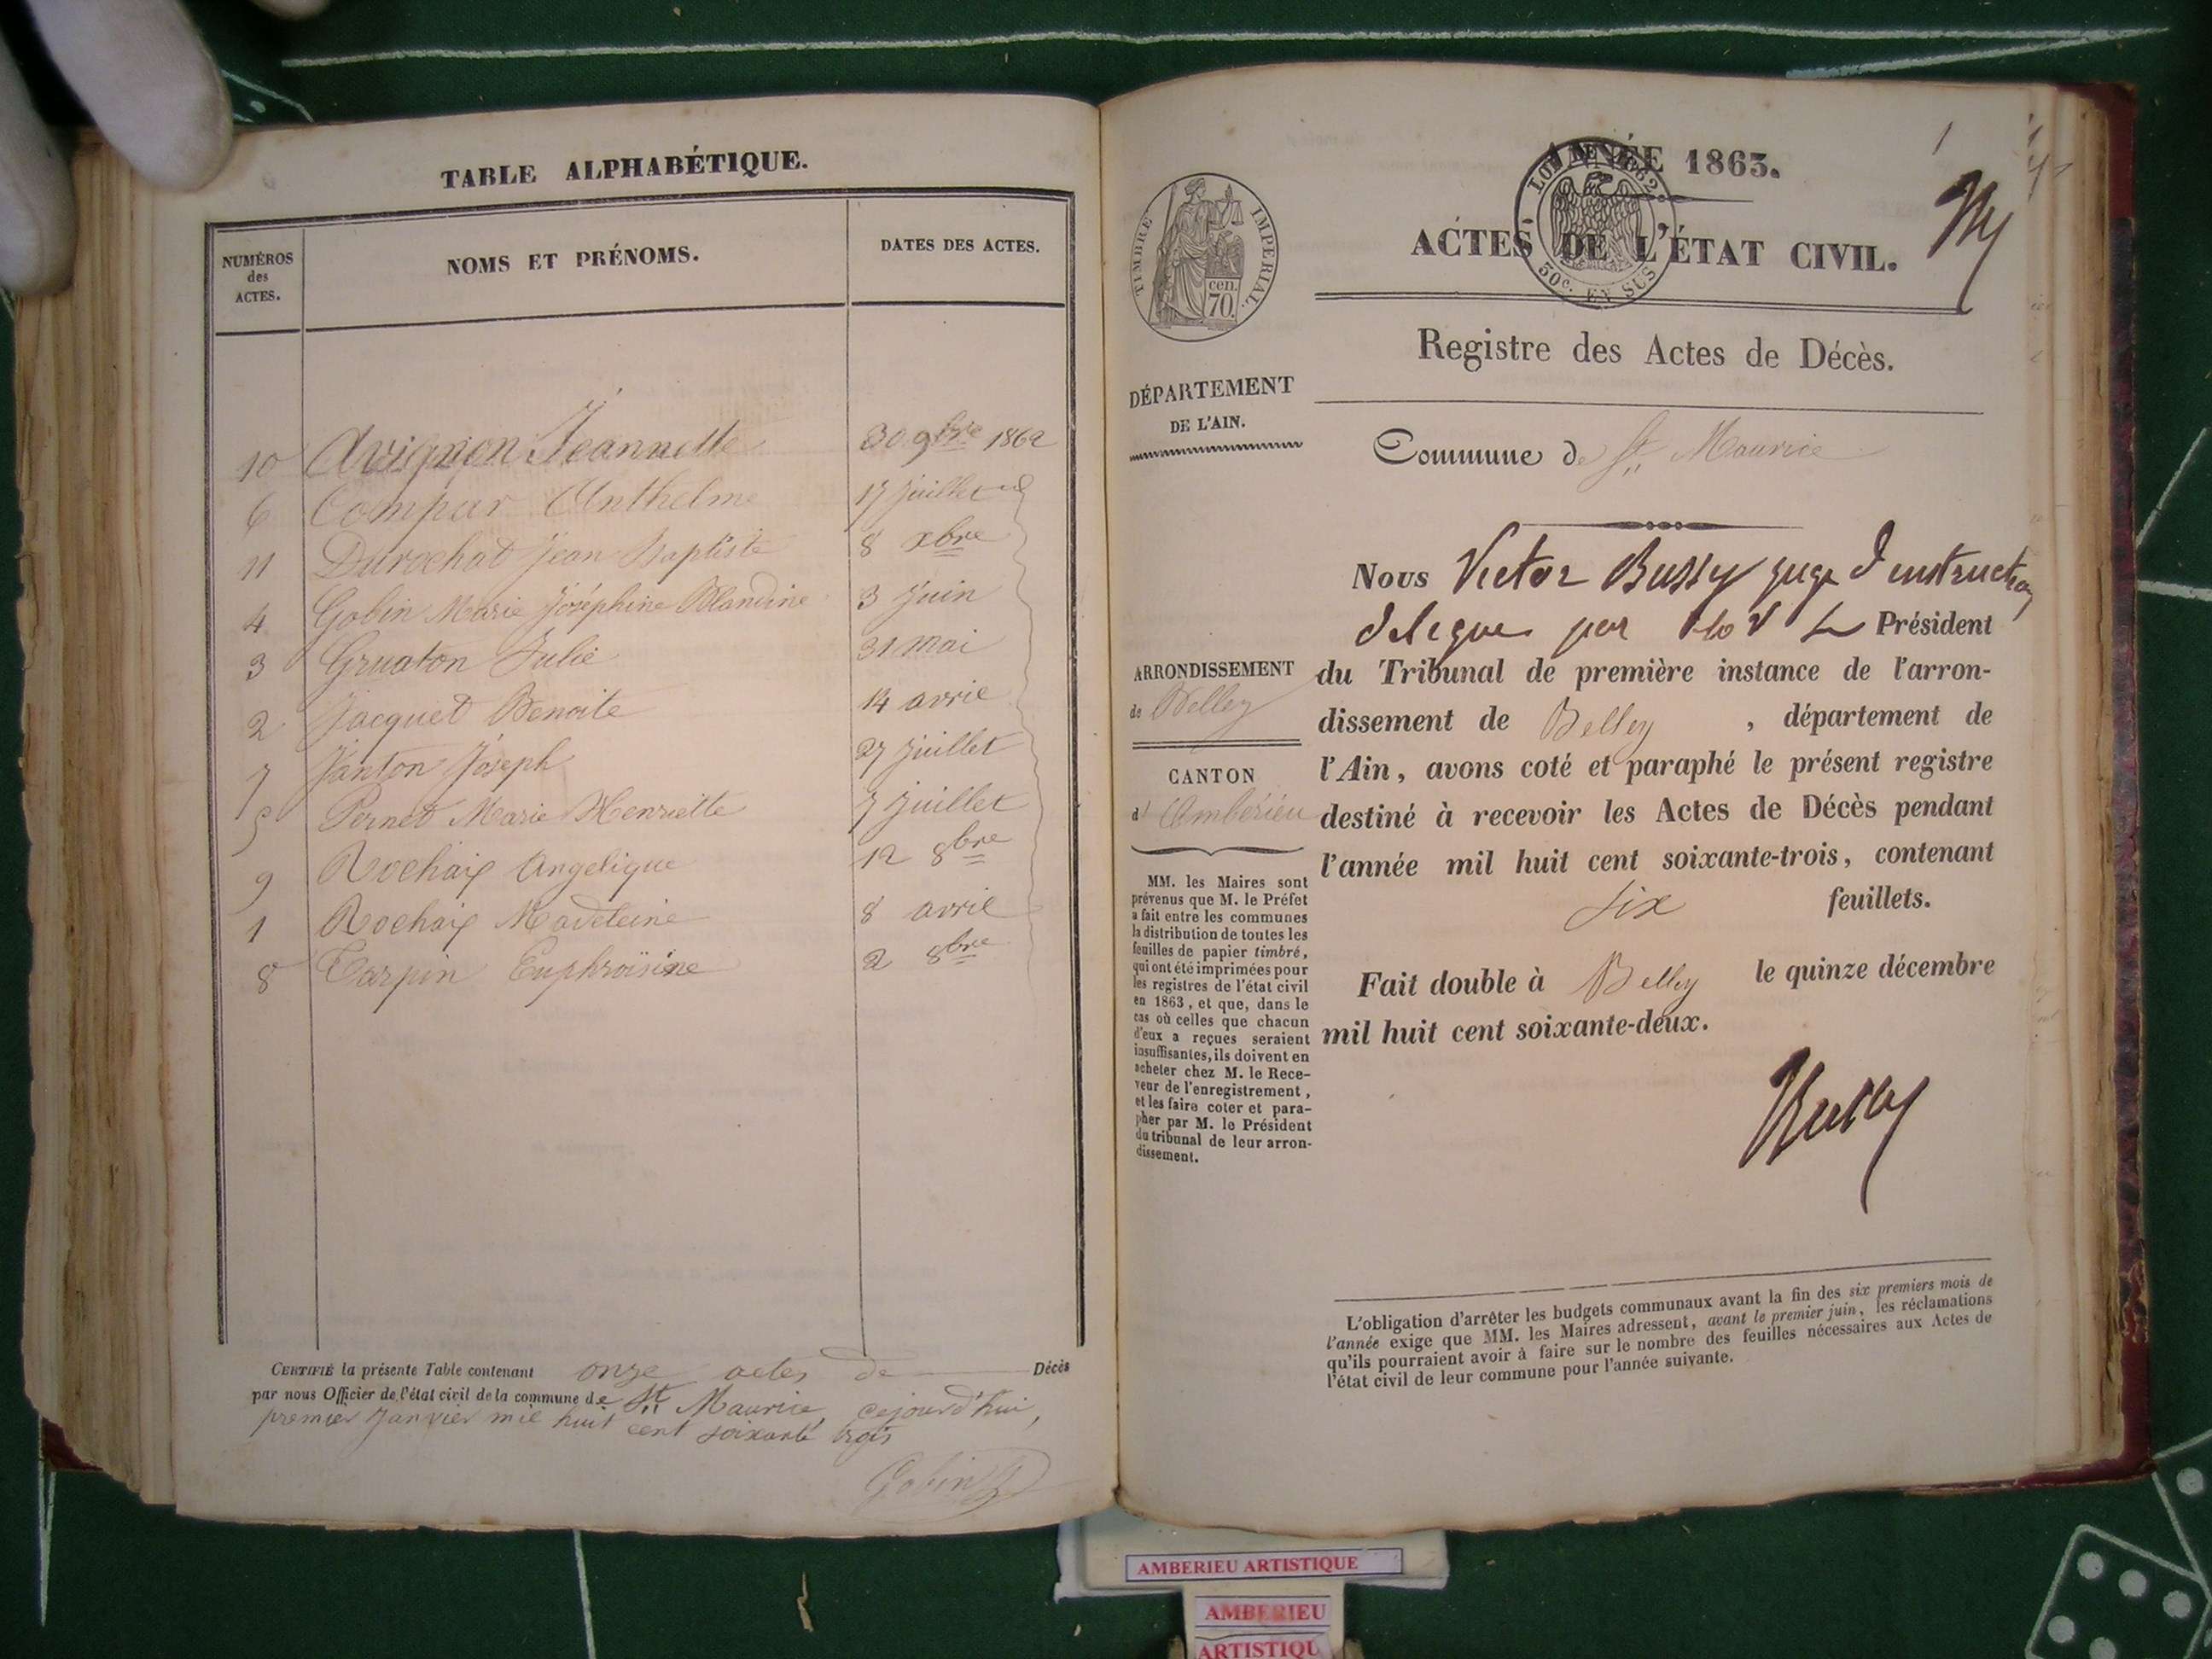 TABLE ALPHABÉTIQUE.
NUMÉROS
des
ACTES.
NOMS ET PRÉNOMS.
DATES DES ACTES.
10 Avignon Jeannette 30 9bre 1862
6 Compar Anthelme 17 Juillet id
11 Durochat Jean Baptiste 8 xbre
4 Gobin Marie Joséphine Blandine 3 Juin
3 Gruaton Julie 31 mai
2 Jacquet Benoite 14 avril
7 Janton Joseph 27 Juillet
5 Pernet Marie Henriette 7 Juillet
9 Rochaix Angelique 12 8bre
1 Rochaix Madeleine 8 avril
8 Tarpin Euphroisine 2 8bre
CERTIFIÉ la présente Table contenant onze actes de Décès
par nous Officier de l'état civil de la commune de St Maurice, cejourd'hui,
premier Janvier mil huit cent soixante trois
Gobin
ANNÉE 1863.
LOI DE 1862
50c. EN SUS
TIMBRE IMPERIAL.
cen.
70.
1
ACTES DE L'ÉTAT CIVIL.
Registre des Actes de Décès.
DÉPARTEMENT
DE L'AIN.
Commune de St Maurice
Nous Victor Bussy juge d'instruction
délégué par le Président
ARRONDISSEMENT
de Belley
du Tribunal de première instance de l'arron-
dissement de Belley, département de
l'Ain, avons coté et paraphé le présent registre
destiné à recevoir les Actes de Décès pendant
l'année mil huit cent soixante-trois, contenant
six feuillets.
Fait double à Belley le quinze décembre
mil huit cent soixante-deux.
Bussy
CANTON
d' Ambérieu
MM. les Maires sont
prévenus que M. le Préfet
a fait entre les communes
la distribution de toutes les
feuilles de papier timbré,
qui ont été imprimées pour
les registres de l'état civil
en 1863, et que, dans le
cas où celles que chacun
d'eux a reçues seraient
insuffisantes, ils doivent en
acheter chez M. le Rece-
veur de l'enregistrement,
et les faire coter et para-
pher par M. le Président
du tribunal de leur arron-
dissement.
L'obligation d'arrêter les budgets communaux avant la fin des six premiers mois de
l'année exige que MM. les Maires adressent, avant le premier juin, les réclamations
qu'ils pourraient avoir à faire sur le nombre des feuilles nécessaires aux Actes de
l'état civil de leur commune pour l'année suivante.
AMBERIEU ARTISTIQUE
AMBERIEU
ARTISTIQU